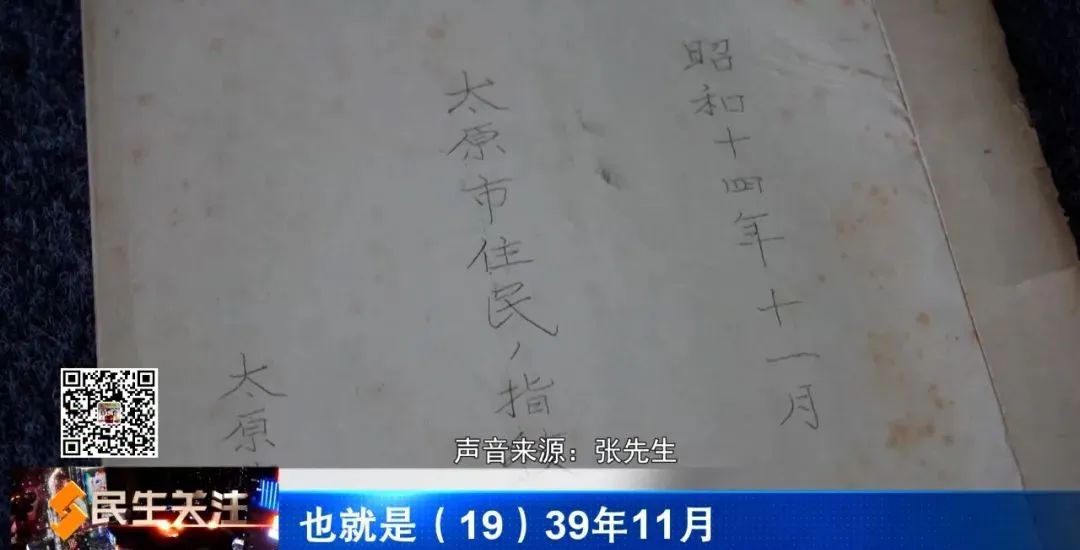 昭和十四年十一月
太原市住民ノ指紋
太原
声音来源：张先生
民生关注
也就是（19）39年11月